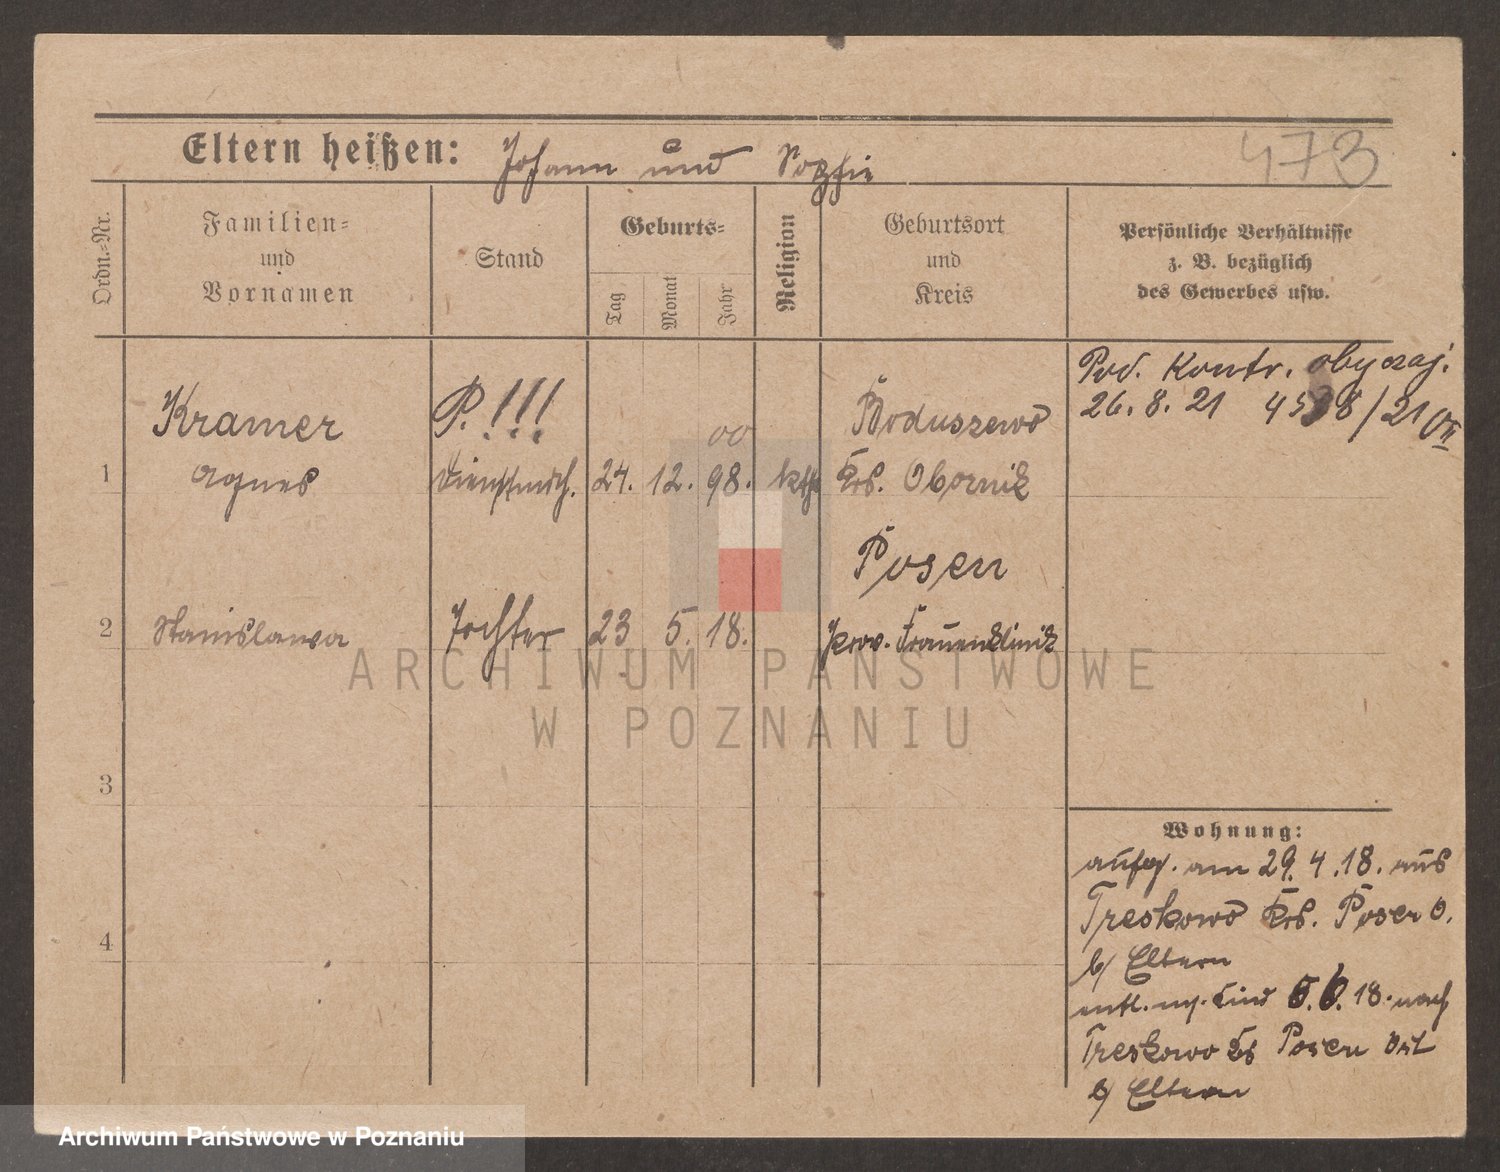 473
Eltern heißen: Johann und Sophie
Ordn.-Nr.
Familien-
und
Vornamen
Stand
Geburts-
Tag
Monat
Jahr
Religion
Geburtsort
und
Kreis
Persönliche Verhältnisse
z. B. bezüglich
des Gewerbes usw.
Pod. Kontr. obyczaj.
26.8.21 4598/21
Kramer P.!!! 00 Boduszewo
1 Agnes Dienstmdch. 24. 12. 98. kath Krs. Obornik
Posen
2 Stanislawa Tochter 23 5. 18. Prov. Frauenklinik
3
4
Wohnung:
aufg. am 29.4.18. aus
Treskowo Krs. Posen O.
b/ Eltern
entl. m. Kind 5.6.18. nach
Treskowo Krs Posen Ost
b/ Eltern
ARCHIWUM PAŃSTWOWE
W POZNANIU
Archiwum Państwowe w Poznaniu